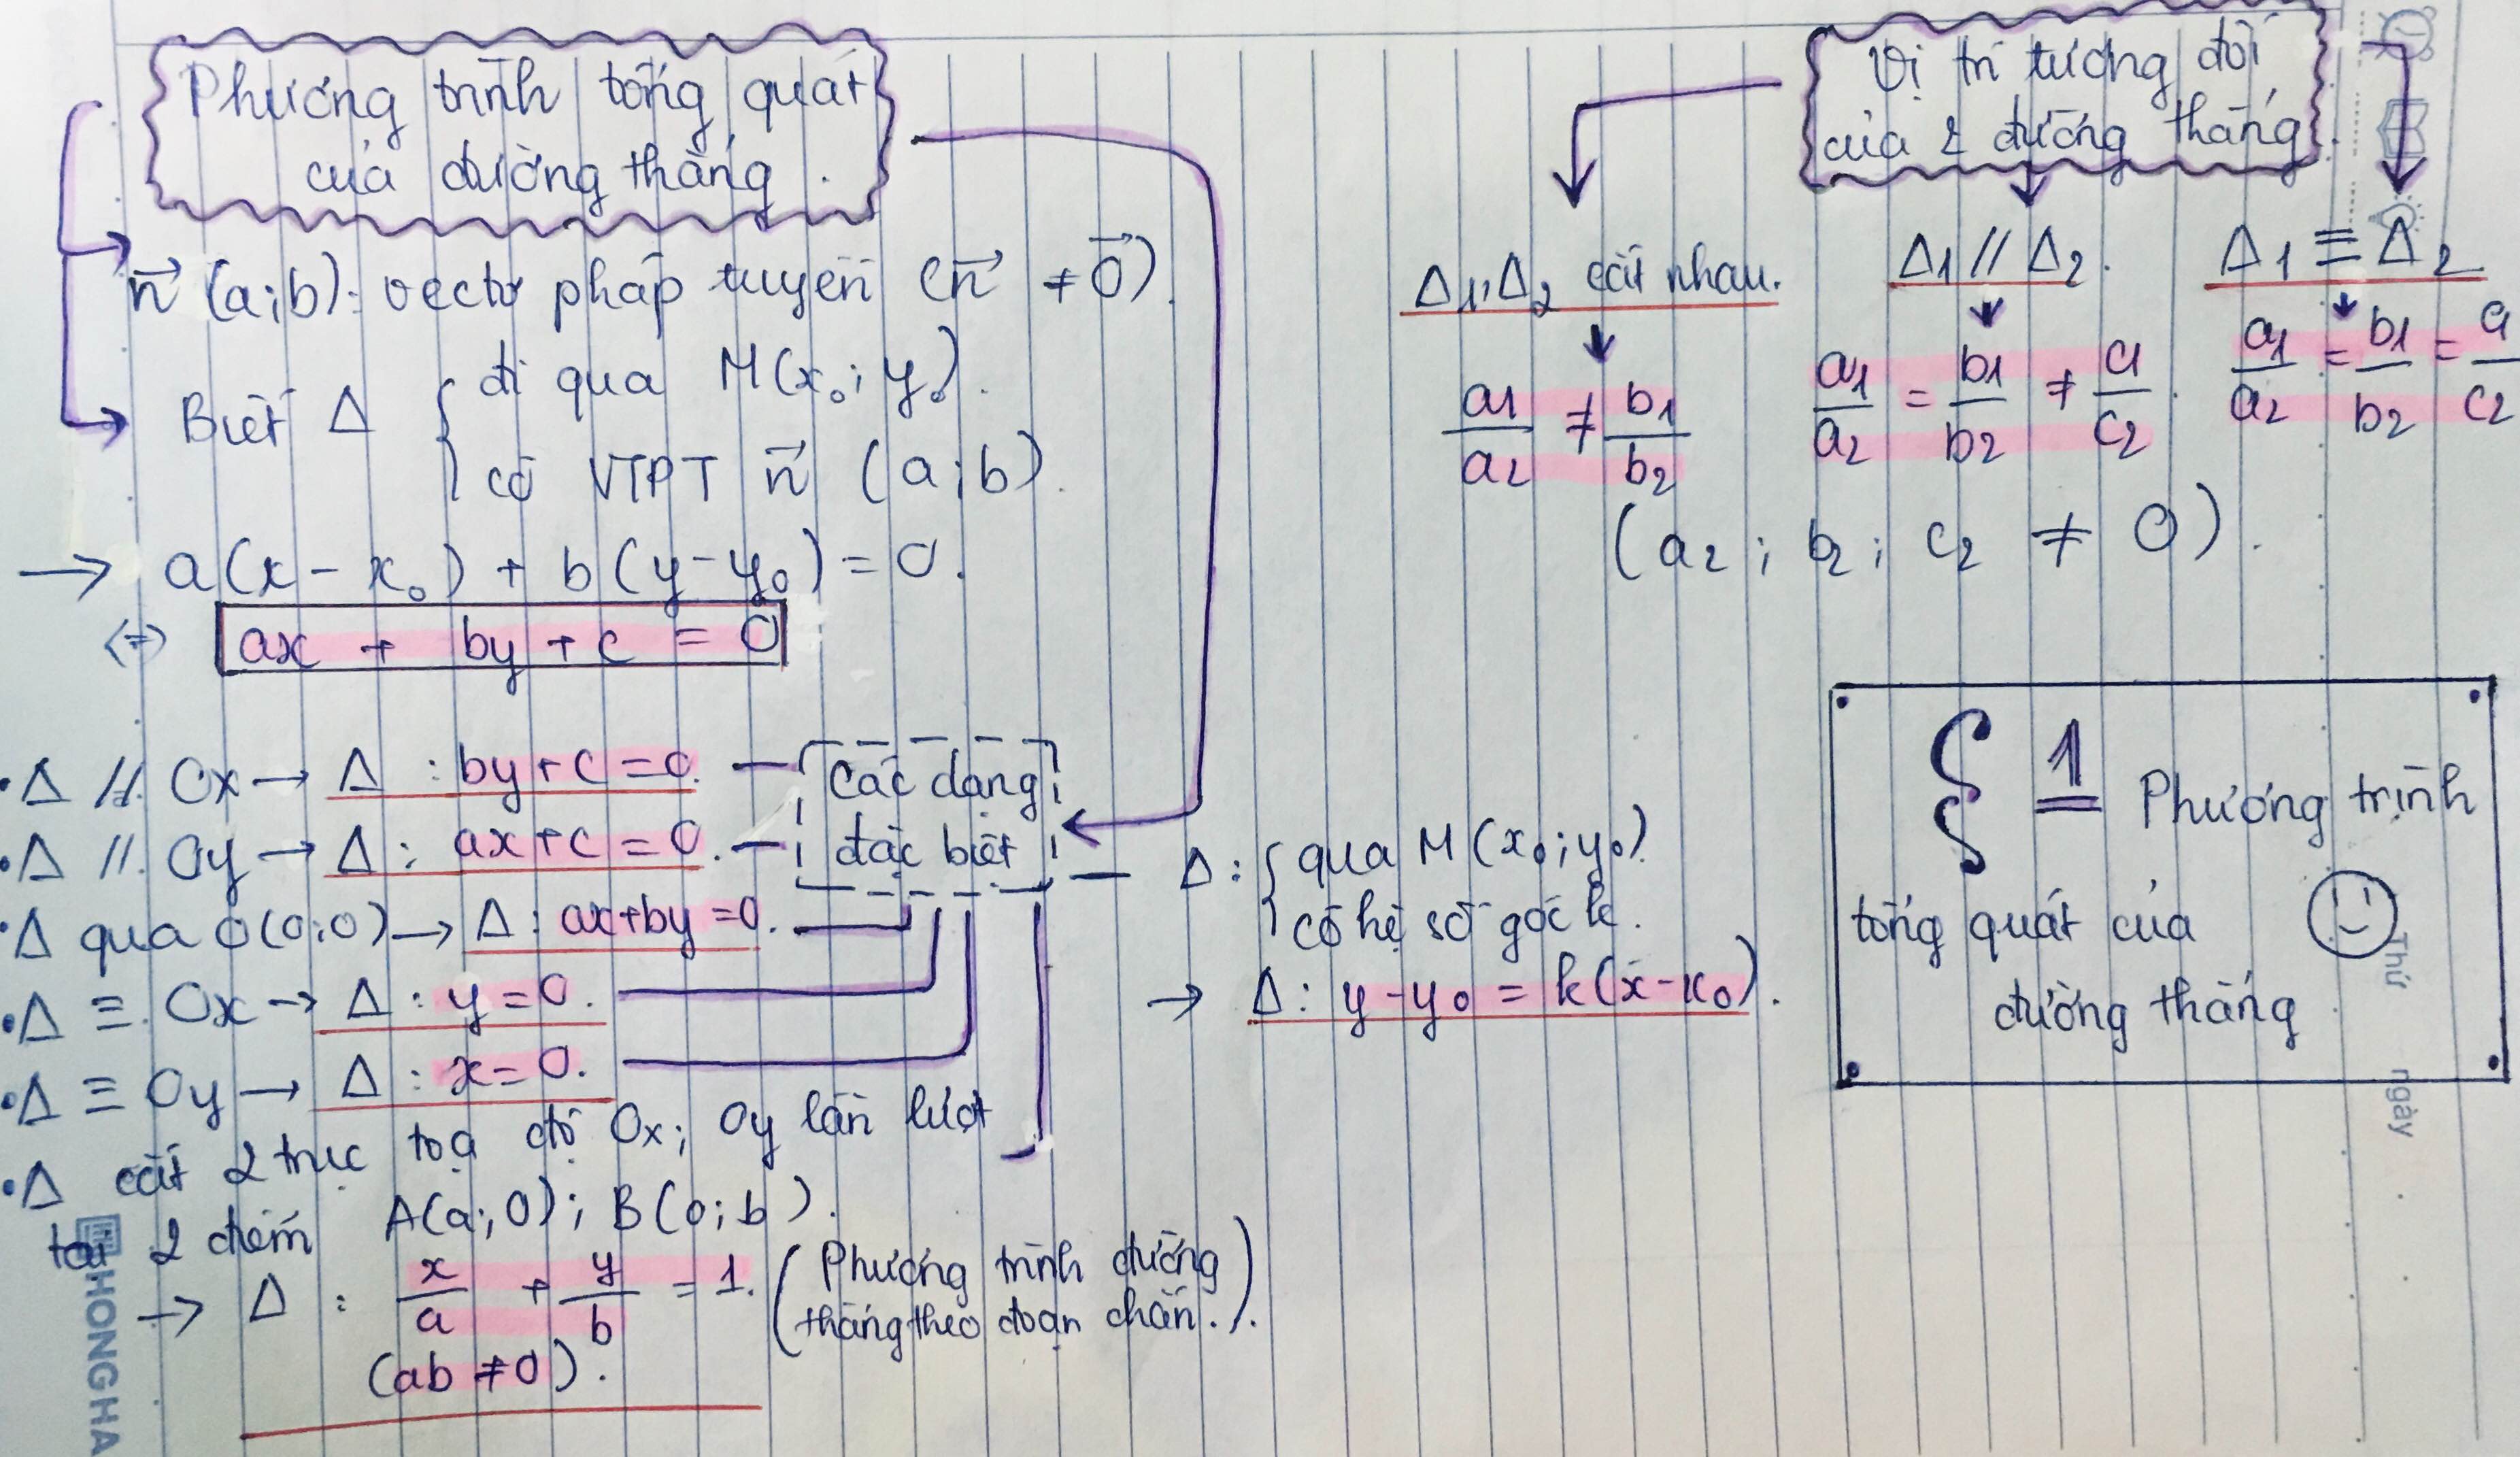 Phương trình tổng quát
của đường thẳng.
n⃗ (a;b): vectơ pháp tuyến (n⃗ ≠ 0⃗).
Biết Δ { đi qua M(x₀; y₀).
có VTPT n⃗ (a;b).
→ a(x - x₀) + b(y - y₀) = 0.
<=> ax + by + c = 0
• Δ // Ox → Δ : by + c = 0.
• Δ // Oy → Δ : ax + c = 0.
• Δ qua O(0;0) → Δ : ax + by = 0.
• Δ ≡ Ox → Δ : y = 0.
• Δ ≡ Oy → Δ : x = 0.
• Δ cắt 2 trục toạ độ Ox; Oy lần lượt
tại 2 điểm A(a;0); B(0;b).
→ Δ : x/a + y/b = 1. (Phương trình đường
thẳng theo đoạn chắn.).
(ab ≠ 0).
Các dạng
đặc biệt
Δ: { qua M(x₀; y₀).
có hệ số góc k.
→ Δ: y - y₀ = k(x - x₀).
Vị trí tương đối
của 2 đường thẳng.
Δ₁, Δ₂ cắt nhau.
a₁/a₂ ≠ b₁/b₂
Δ₁ // Δ₂.
a₁/a₂ = b₁/b₂ ≠ c₁/c₂.
Δ₁ ≡ Δ₂
a₁/a₂ = b₁/b₂ = c₁/c₂
(a₂; b₂; c₂ ≠ 0).
§ 1 Phương trình
tổng quát của
đường thẳng
Thứ
ngày
HONG HA